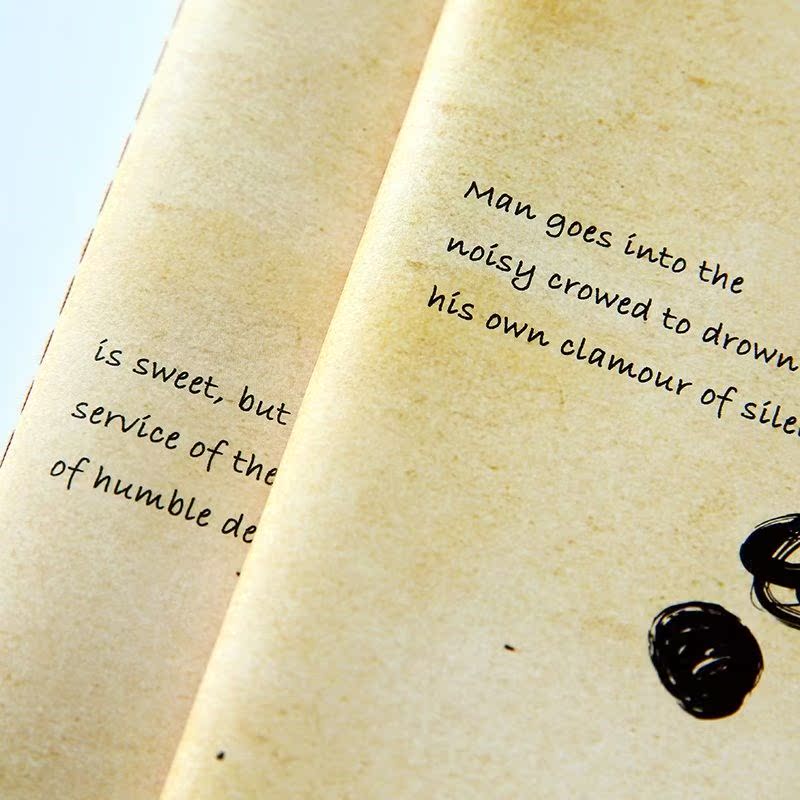 is sweet, but
service of the
of humble de
Man goes into the
noisy crowed to drown
his own clamour of sile